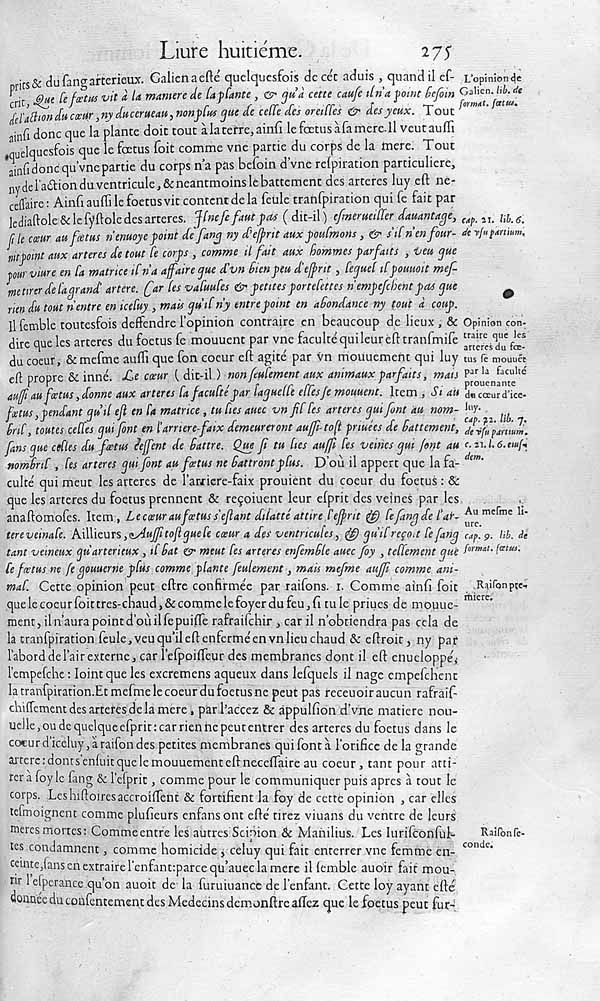 Liure huitiéme. 275
prits & du sang arterieux. Galien a esté quelquesfois de cét aduis, quand il es-
crit, Que le fœtus vit à la maniere de la plante, & qu'à cette cause il n'a point besoin
de l'action du cœur, ny du cerueau, non plus que de celle des oreilles & des yeux. Tout
ainsi donc que la plante doit tout à la terre, ainsi le fœtus à sa mere. Il veut aussi
quelquesfois que le fœtus soit comme vne partie du corps de la mere. Tout
ainsi donc qu'vne partie du corps n'a pas besoin d'vne respiration particuliere,
ny de l'action du ventricule, & neantmoins le battement des arteres luy est ne-
cessaire: Ainsi aussi le foetus vit content de la seule transpiration qui se fait par
le diastole & le systole des arteres. Il ne se faut pas (dit-il) esmerueiller dauantage,
si le cœur au fœtus n'enuoye point de sang ny d'esprit aux poulmons, & s'il n'en four-
nit point aux arteres de tout le corps, comme il fait aux hommes parfaits, veu que
pour viure en la matrice il n'a affaire que d'vn bien peu d'esprit, lequel il pouuoit mes-
me tirer de la grand' artere. Car les valuules & petites portelettes n'empeschent pas que
rien du tout n'entre en iceluy, mais qu'il n'y entre point en abondance ny tout à coup.
Il semble toutesfois deffendre l'opinion contraire en beaucoup de lieux, &
dire que les arteres du foetus se mouuent par vne faculté qui leur est transmise
du coeur, & mesme aussi que son coeur est agité par vn mouuement qui luy
est propre & inné. Le cœur (dit-il) non seulement aux animaux parfaits, mais
aussi au fœtus, donne aux arteres la faculté par laquelle elles se mouuent. Item, Si au
fœtus, pendant qu'il est en la matrice, tu lies auec vn fil les arteres qui sont au nom-
bril, toutes celles qui sont en l'arriere-faix demeureront aussi-tost priuées de battement,
sans que celles du fœtus cessent de battre. Que si tu lies aussi les veines qui sont au
nombril, les arteres qui sont au fœtus ne battront plus. D'où il appert que la fa-
culté qui meut les arteres de l'arriere-faix prouient du coeur du foetus: &
que les arteres du foetus prennent & reçoiuent leur esprit des veines par les
anastomoses. Item, Le cœur au fœtus s'estant dilatté attire l'esprit & le sang de l'ar-
tere veinale. Ailleurs, Aussi tost que le cœur a des ventricules, & qu'il reçoit le sang
tant veineux qu'arterieux, il bat & meut les arteres ensemble auec soy, tellement que
le fœtus ne se gouuerne plus comme plante seulement, mais mesme aussi comme ani-
mal. Cette opinion peut estre confirmée par raisons. 1. Comme ainsi soit
que le coeur soit tres-chaud, & comme le foyer du feu, si tu le priues de mouue-
ment, il n'aura point d'où il se puisse rafraischir, car il n'obtiendra pas cela de
la transpiration seule, veu qu'il est enfermé en vn lieu chaud & estroit, ny par
l'abord de l'air externe, car l'espoisseur des membranes dont il est enueloppé,
l'empesche: Ioint que les excremens aqueux dans lesquels il nage empeschent
la transpiration. Et mesme le coeur du foetus ne peut pas receuoir aucun rafrais-
chissement des arteres de la mere, par l'accez & appulsion d'vne matiere nou-
uelle, ou de quelque esprit: car rien ne peut entrer des arteres du foetus dans le
coeur d'iceluy, à raison des petites membranes qui sont à l'orifice de la grande
artere: dont s'ensuit que le mouuement est necessaire au coeur, tant pour atti-
rer à soy le sang & l'esprit, comme pour le communiquer puis apres à tout le
corps. Les histoires accroissent & fortifient la foy de cette opinion, car elles
tesmoignent comme plusieurs enfans ont esté tirez viuans du ventre de leurs
meres mortes: Comme entre les autres Scipion & Manilius. Les Iurisconsul-
tes condamnent, comme homicide, celuy qui fait enterrer vne femme en-
ceinte, sans en extraire l'enfant: parce qu'auec la mere il semble auoir fait mou-
rir l'esperance qu'on auoit de la suruiuance de l'enfant. Cette loy ayant esté
donnée du consentement des Medecins demonstre assez que le foetus peut sur-
L'opinion de
Galien. lib. de
format. fœtus.
cap. 21. lib. 6.
de vsu partium.
Opinion con-
traire que les
arteres du fœ-
tus se mouuēt
par la faculté
prouenante
du cœur d'ice-
luy.
cap. 22. lib. 7.
de vsu partium.
c. 21. l. 6. eius-
dem.
Au mesme li-
ure.
cap. 9. lib. de
format. fœtus.
Raison pre-
miere.
Raison se-
conde.